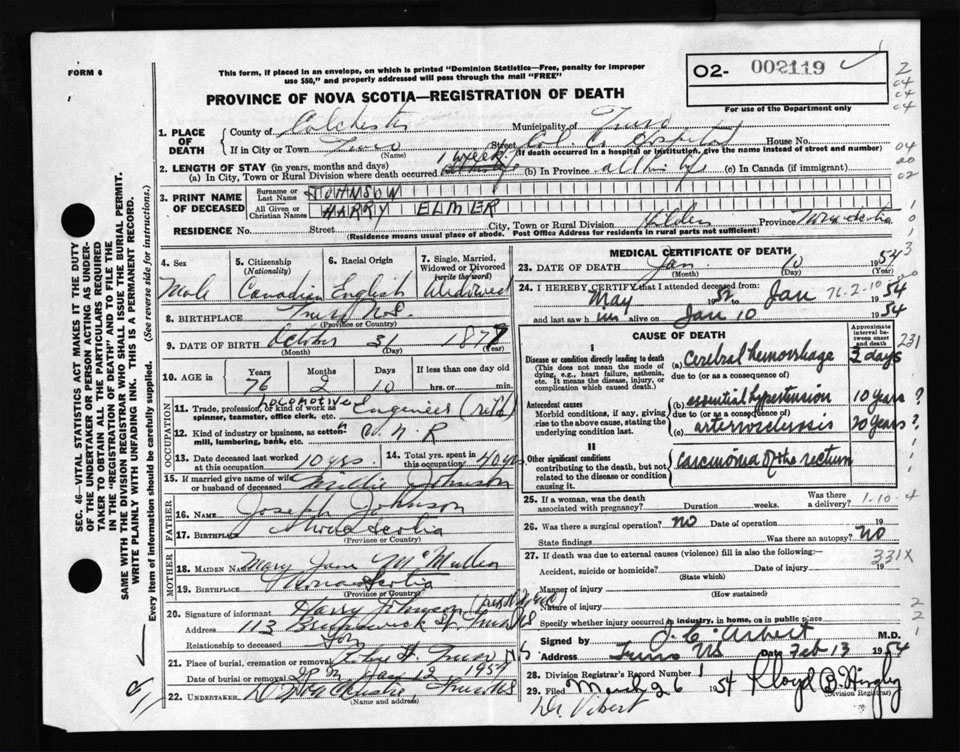 FORM 6
This form, if placed in an envelope, on which is printed "Dominion Statistics—Free, penalty for improper
use $50," and properly addressed will pass through the mail "FREE"
O2- 002119
For use of the Department only
PROVINCE OF NOVA SCOTIA—REGISTRATION OF DEATH
1. PLACE OF DEATH
County of Colchester Municipality of Truro
If in City or Town Truro (Name) Street House No.
(If death occurred in a hospital or institution, give the name instead of street and number)
2. LENGTH OF STAY (in years, months and days)
(a) In City, Town or Rural Division where death occurred 1 week (b) In Province all his life (c) In Canada (if immigrant)
3. PRINT NAME OF DECEASED
Surname or Last Name JOHNSON
All Given or Christian Names HARRY ELMER
RESIDENCE No. Street City, Town or Rural Division Hilden Province Nova Scotia
(Residence means usual place of abode. Post Office Address for residents in rural parts not sufficient)
4. Sex Male
5. Citizenship (Nationality) Canadian
6. Racial Origin English
7. Single, Married, Widowed or Divorced (write the word) Widowed
8. BIRTHPLACE Truro N.S. (Province or Country)
9. DATE OF BIRTH October (Month) 31 (Day) 1877 (Year)
10. AGE in Years 76 Months 2 Days 10 If less than one day hrs. or min.
OCCUPATION
11. Trade, profession, or kind of work as spinner, teamster, office clerk, etc. Locomotive Engineer (ret'd)
12. Kind of industry or business, as cotton-mill, lumbering, bank, etc. C.N.R
13. Date deceased last worked at this occupation 10 yrs. 14. Total yrs. spent in this occupation 40 yrs
15. If married give name of wife or husband of deceased Millie Johnson
FATHER
16. Name Joseph Johnson
17. Birthplace Nova Scotia (Province or Country)
MOTHER
18. Maiden Name Mary Jane McMullen
19. Birthplace Nova Scotia (Province or Country)
20. Signature of informant Harry Johnson
Address 113 Brunswick St. Truro NS
Relationship to deceased Son
21. Place of burial, cremation or removal Truro N.S
Date of burial or removal Jan 12 1954
22. UNDERTAKER Truro NS
(Name and address)
MEDICAL CERTIFICATE OF DEATH
23. DATE OF DEATH Jan. (Month) 10 (Day) 1954 (Year)
24. I HEREBY CERTIFY that I attended deceased from:
May 1952 to Jan 76-2-10 1954
and last saw him alive on Jan 10 1954
CAUSE OF DEATH
Approximate interval between onset and death
I
Disease or condition directly leading to death
(This does not mean the mode of dying, e.g., heart failure, asthenia, etc. It means the disease, injury, or complication which caused death.)
(a) Cerebral hemorrhage 3 days
due to (or as a consequence of)
Antecedent causes
Morbid conditions, if any, giving rise to the above cause, stating the underlying condition last.
(b) essential hypertension 10 years ?
due to (or as a consequence of)
(c) arteriosclerosis 20 years ?
II
Other significant conditions
contributing to the death, but not related to the disease or condition causing it.
Carcinoma of the rectum
25. If a woman, was the death associated with pregnancy? Duration weeks. Was there a delivery?
26. Was there a surgical operation? NO Date of operation 19
State findings Was there an autopsy? NO
27. If death was due to external causes (violence) fill in also the following:—
331X
Accident, suicide or homicide? (State which) Date of injury 19
Manner of injury (How sustained)
Nature of injury
Specify whether injury occurred in industry, in home, or in public place
Signed by M.D.
Address Truro NS Date Feb 13 1954
28. Division Registrar's Record Number 1
29. Filed March 26 1954 Lloyd B. (Division Registrar)
Dr Vibert
SEC. 46—VITAL STATISTICS ACT MAKES IT THE DUTY
OF THE UNDERTAKER OR PERSON ACTING AS UNDER-
TAKER TO OBTAIN ALL THE PARTICULARS REQUIRED
IN THE "REGISTRATION OF DEATH" AND TO FILE THE
SAME WITH THE DIVISION REGISTRAR WHO SHALL ISSUE THE BURIAL PERMIT.
WRITE PLAINLY WITH UNFADING INK. THIS IS A PERMANENT RECORD.
Every item of information should be carefully supplied. (See reverse side for instructions.)